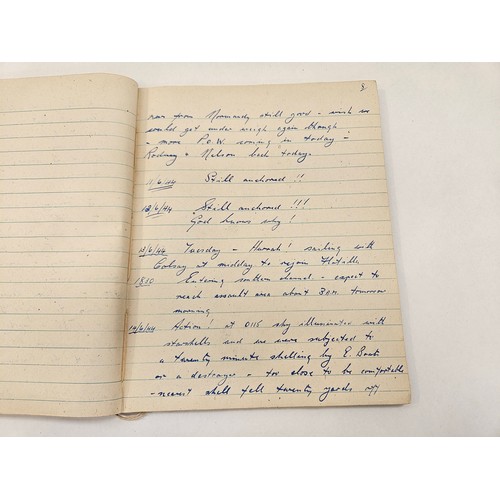 8
news from Normandy still good - wish we
would get under weigh again though
- more P.o.W. coming in today -
Rodney & Nelson back today.
11/6/44 Still anchored!!
12/6/44 Still anchored!!!
God knows why!
13/6/44 Tuesday - Hurrah! sailing with
Colsay at midday to rejoin Flotilla
1810 Entering southern channel - expect to
reach assault area about 3 a.m. tomorrow
morning.
14/6/44 Action! at 0115 sky illuminated with
starshells and we were subjected to
a twenty minute shelling by E. Boat
or a destroyer - too close to be comfortable
- nearest shell fell twenty yards off